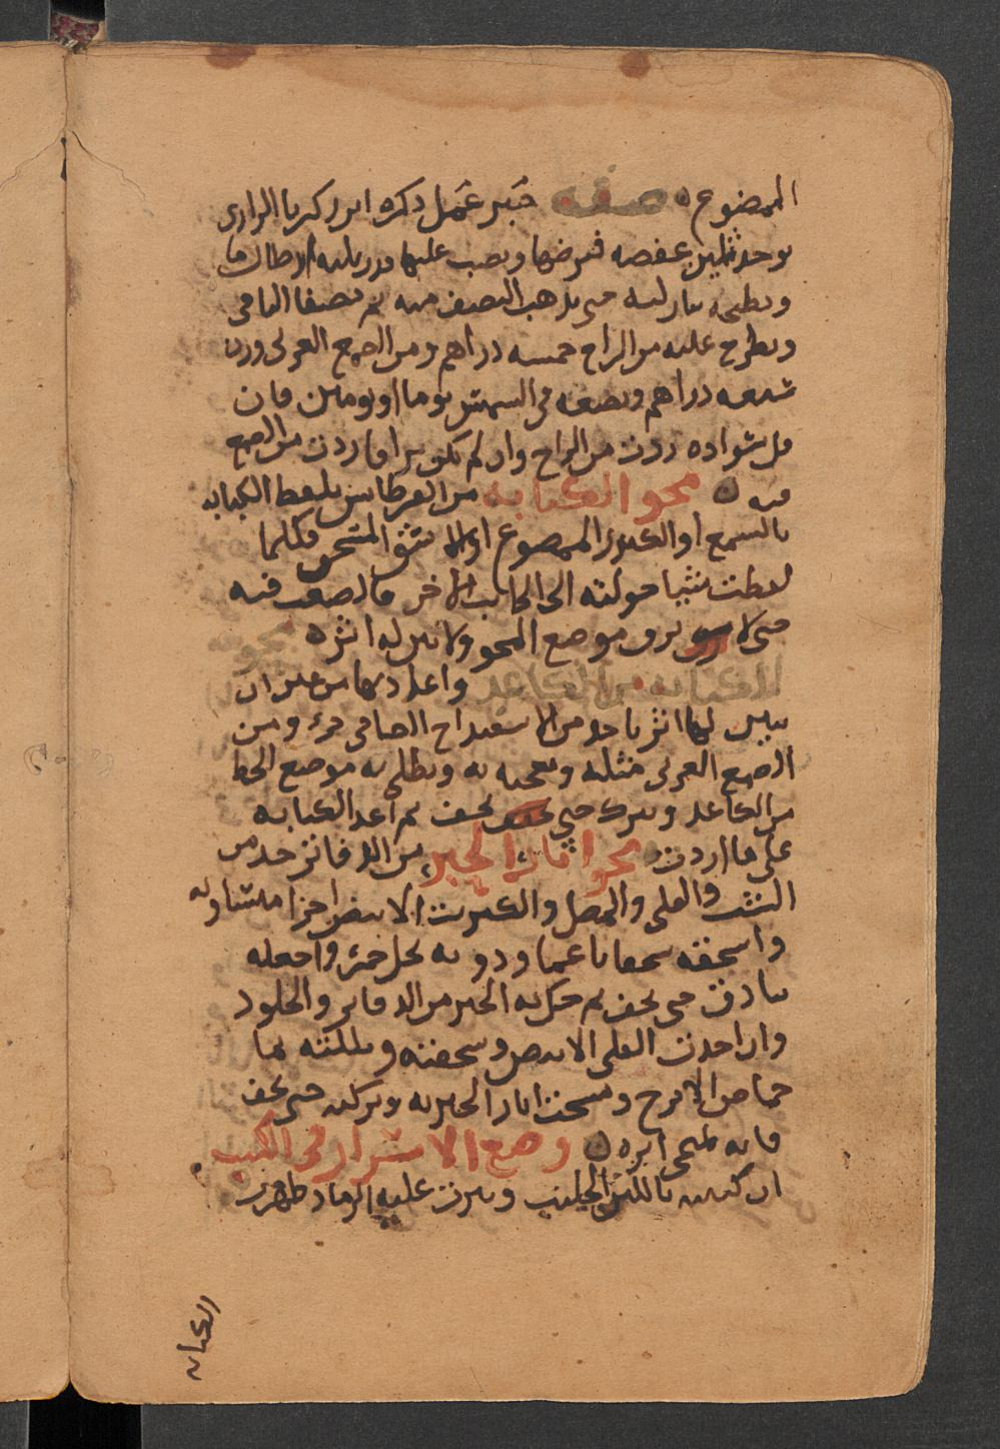 الممضوغ ه صفة حبر عمل ذكره ابن زكريا الرازي
يوخذ ثلثين عفصه فيرضها ويصب عليها قدر ثلثه ارطال ما
ويطبخه بنار لينه حتى يذهب النصف منه ثم تصفا الباقي
ويطرح عليه من الزاج خمسه دراهم ومن الصمغ العربي وزن
سبعه دراهم ويضعه في الشمس يوما او يومين فان
قل سواده زدت من الزاج وان لم يكن براقا زدت من الصمغ
فيه ه محو الكتابه من القرطاس يلقط الكتابه
بالشمع او الكندر الممضوغ اولا
لقطت شيا حولته الى الجانب الاخر فالصقت فيه
حتى لا ترى موضع المحو ولا يبين له اثر ه محو
الكتابه من الكاغد واعادتها من غير ان
يبين لها اثر ياخذ من الاسفيداج الصافي جزء ومن
الصمغ العربي مثله ويعجنه به ويطلى به موضع الخط
من الكاغد ويترك حتى يجف ثم اعد الكتابه
على ما اردت محو اثار الحبر من الدفاتر خذ من
الشب والقلي والبصل والكبريت الابيض اجزا متساويه
واسحقه سحقا ناعما ودوبه بخل خمر واجعله
بنادق حتى يجف ثم حك به الحبر من الدفاتر والجلود
وان اخذت القلي الابيض وسحقته وبللته بما
حماض الاترج ومسحت اثار الحبر به وتركته حتى يجف
فانه يمحى اثره ه وضع الاسرار في الكتب
ان كتبت باللبن الحليب وذرت عليه الرماد ظهرت
الكتابه